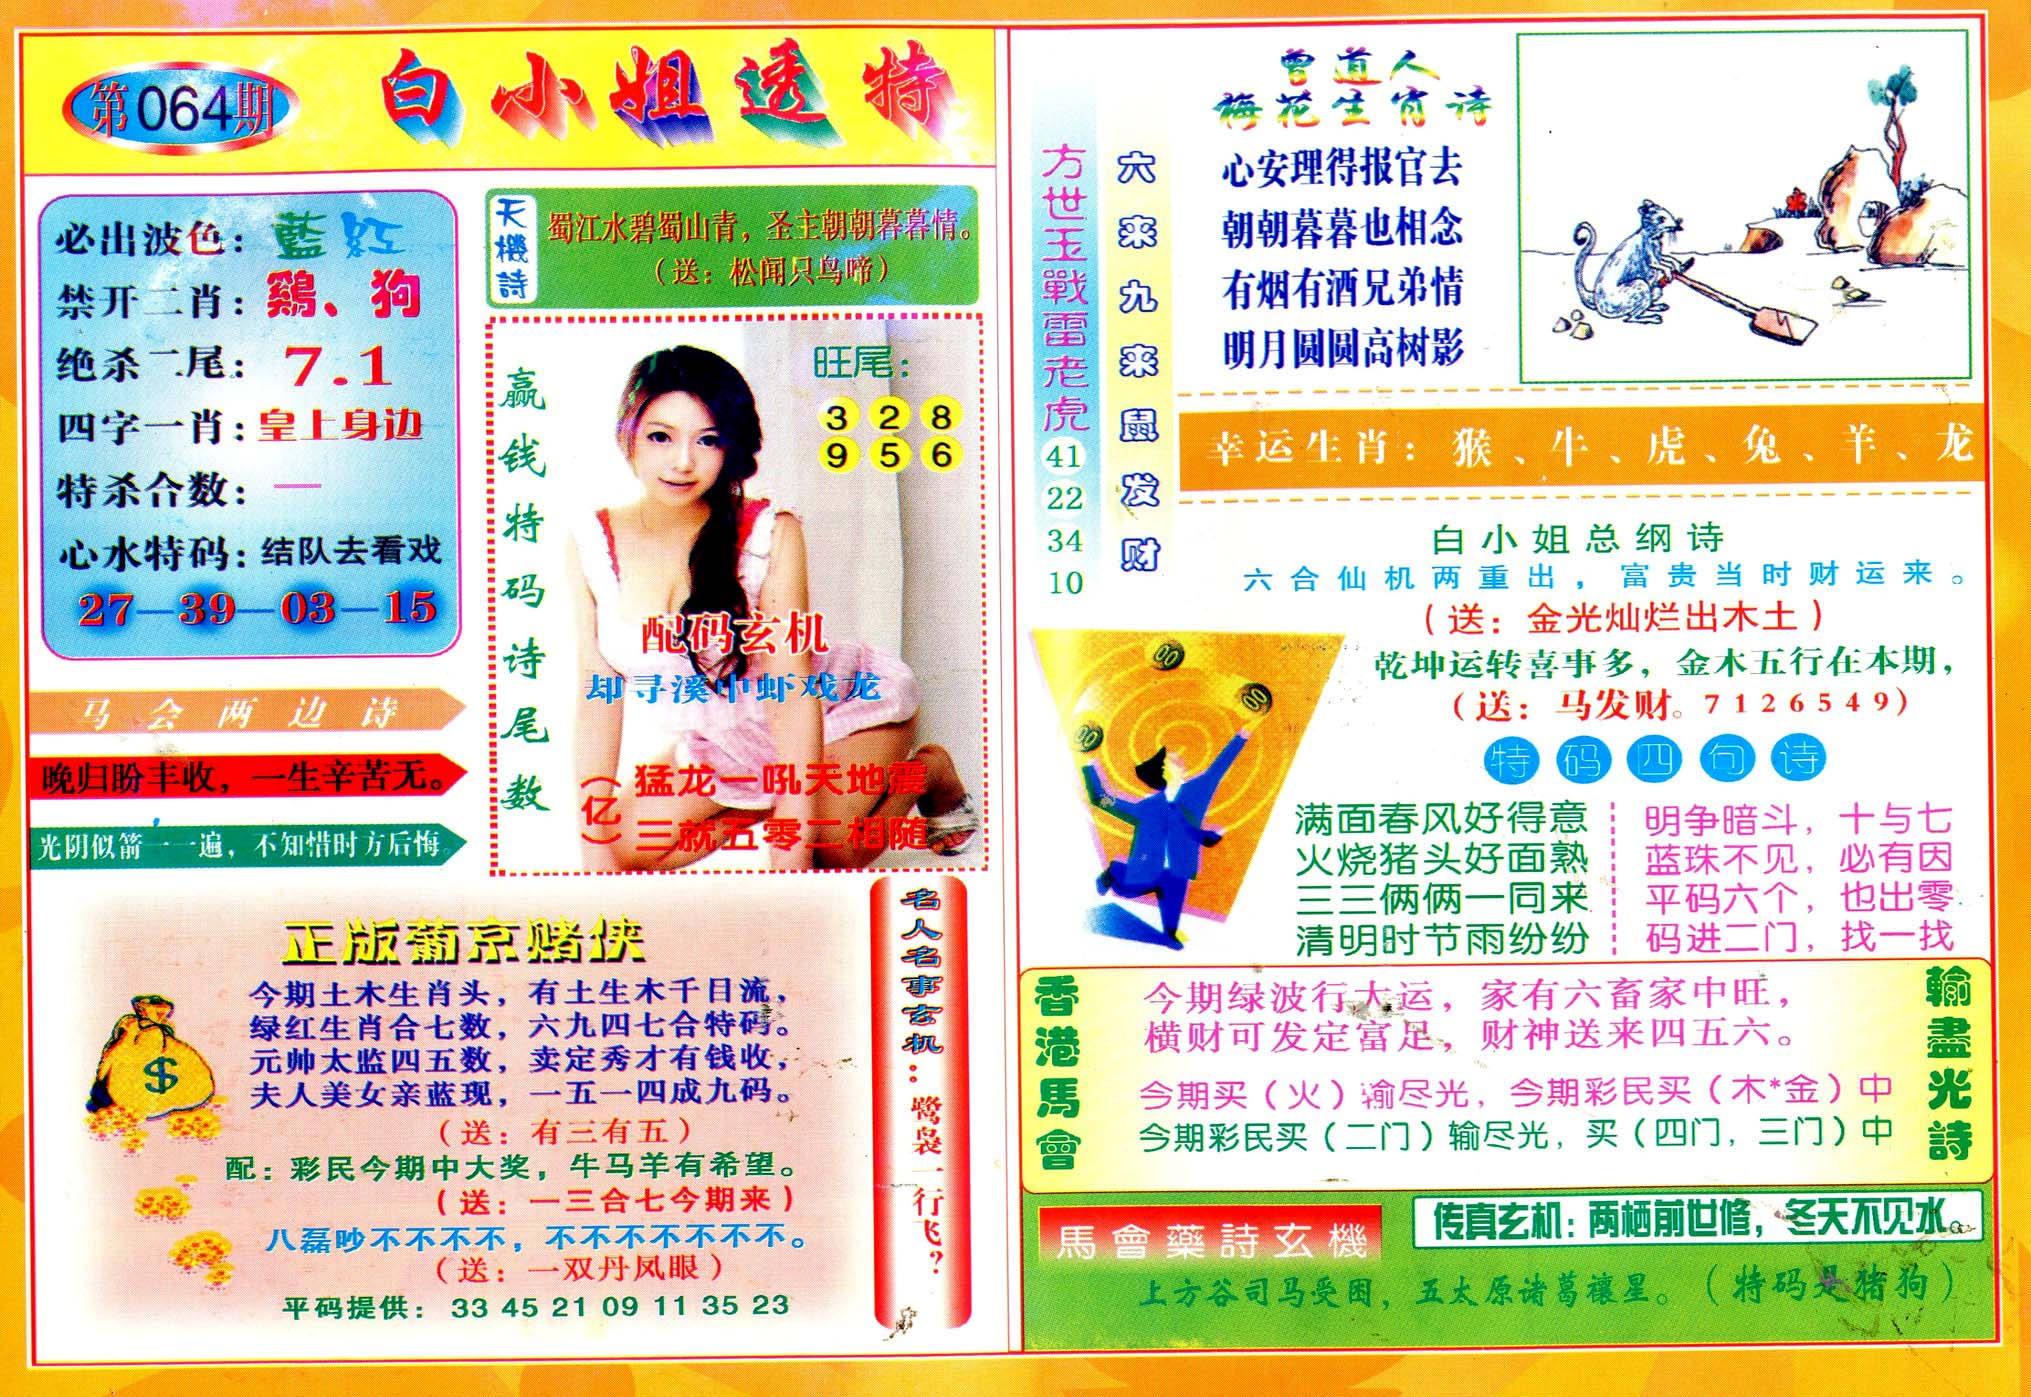 第064期
白小姐透特
必出波色：藍 红
禁开二肖：鷄、狗
绝杀二尾：7.1
四字一肖：皇上身边
特杀合数：一
心水特码：结队去看戏
27—39—03—15
马会两边诗
晚归盼丰收，一生辛苦无。
光阴似箭一一遍，不知惜时方后悔。
天機詩
蜀江水碧蜀山青，圣主朝朝暮暮情。
（送：松闻只鸟啼）
赢钱特码诗尾数
旺尾：
3 2 8
9 5 6
配码玄机
却寻溪中虾戏龙
（亿）
猛龙一吼天地震
三就五零二相随
正版葡京赌侠
今期土木生肖头，有土生木千日流，
绿红生肖合七数，六九四七合特码。
元帅太监四五数，卖定秀才有钱收，
夫人美女亲蓝现，一五一四成九码。
（送：有三有五）
配：彩民今期中大奖，牛马羊有希望。
（送：一三合七今期来）
八磊吵不不不不，不不不不不不不。
（送：一双丹凤眼）
平码提供： 33 45 21 09 11 35 23
$
名人名事玄机：鹭袅一行飞？
方世玉戰雷老虎
41
22
34
10
六来九来鼠发财
曾道人
梅花生肖诗
心安理得报官去
朝朝暮暮也相念
有烟有酒兄弟情
明月圆圆高树影
幸运生肖：猴、牛、虎、兔、羊、龙
白小姐总纲诗
六合仙机两重出，富贵当时财运来。
（送：金光灿烂出木土）
乾坤运转喜事多，金木五行在本期，
（送：马发财。7126549）
特码四句诗
00
00
00
满面春风好得意
火烧猪头好面熟
三三俩俩一同来
清明时节雨纷纷
明争暗斗，十与七
蓝珠不见，必有因
平码六个，也出零
码进二门，找一找
香港馬會
輸盡光詩
今期绿波行大运，家有六畜家中旺，
横财可发定富足，财神送来四五六。
今期买（火）输尽光，今期彩民买（木*金）中
今期彩民买（二门）输尽光，买（四门，三门）中
馬會藥詩玄機
传真玄机：两栖前世修，冬天不见水。
上方谷司马受困，五太原诸葛禳星。（特码是猪狗）